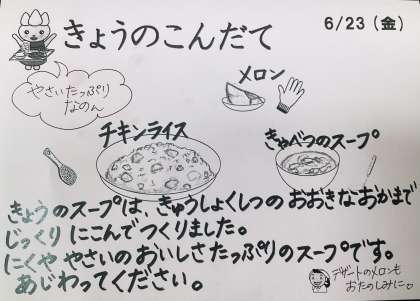 きょうのこんだて
6/23（金）
やさいたっぷり
なのん
メロン
チキンライス
きゃべつのスープ
きょうのスープは、きゅうしょくしつの おおきなおかまで
じっくり にこんでつくりました。
にくや やさいの おいしさたっぷりのスープです。
あじわってください。
デザートのメロンも
おたのしみに。